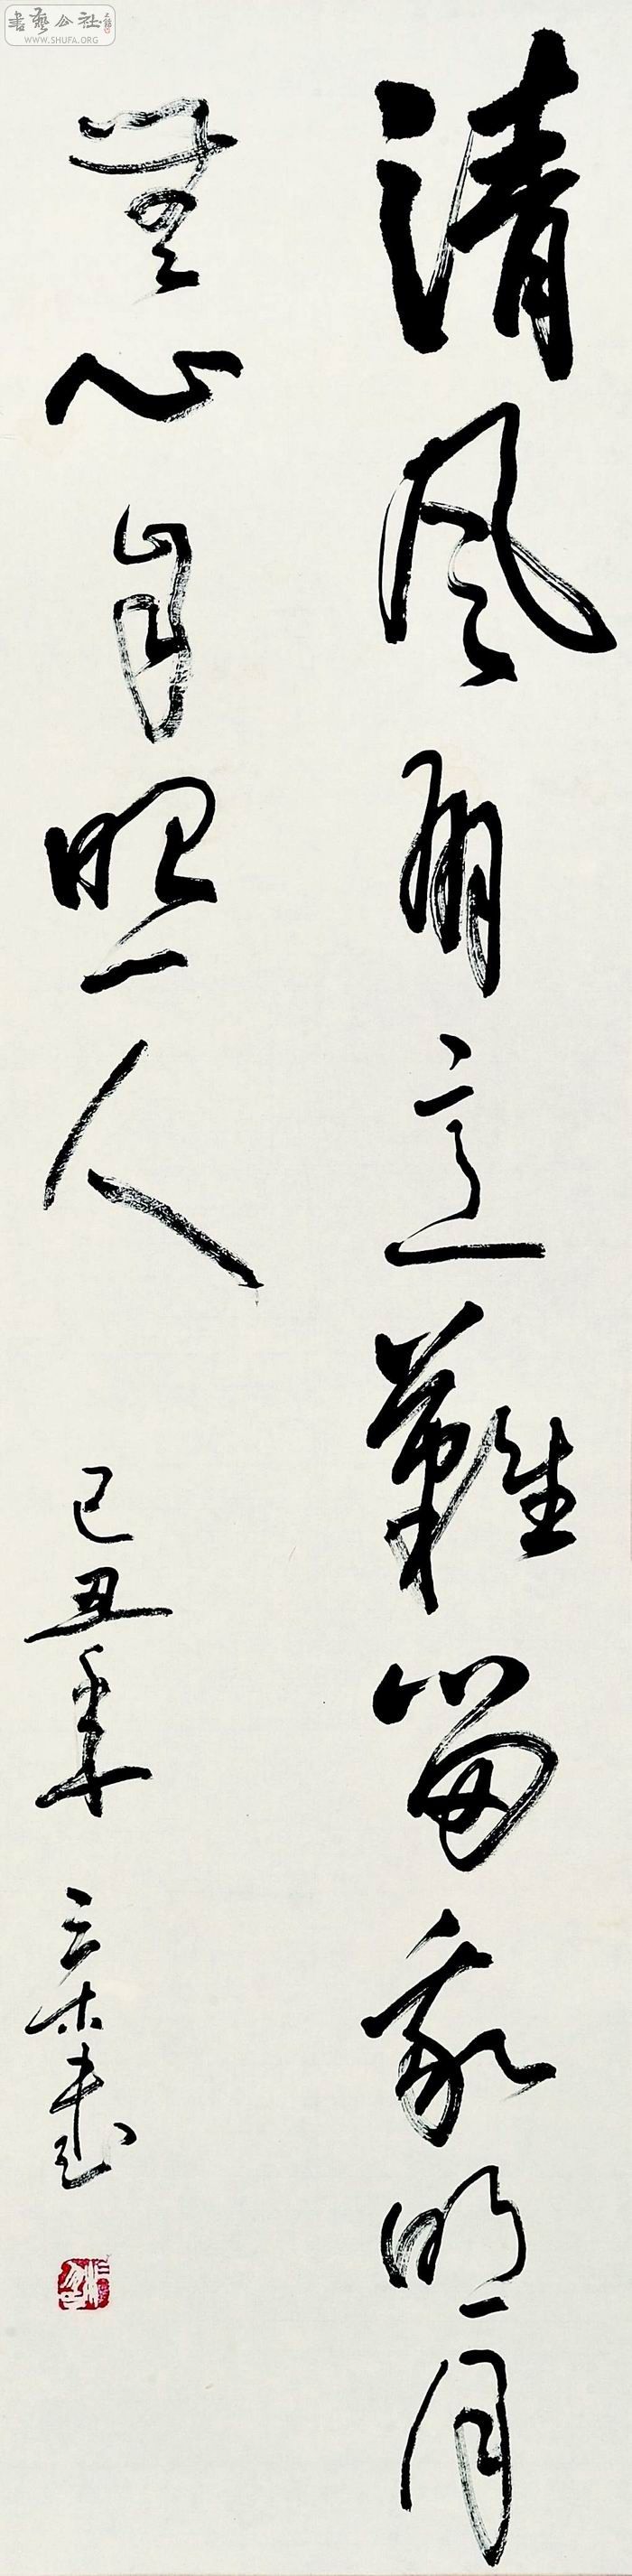 清風有意難留我明月
無心自照人
己丑年 三木書
書藝公社
WWW.SHUFA.ORG